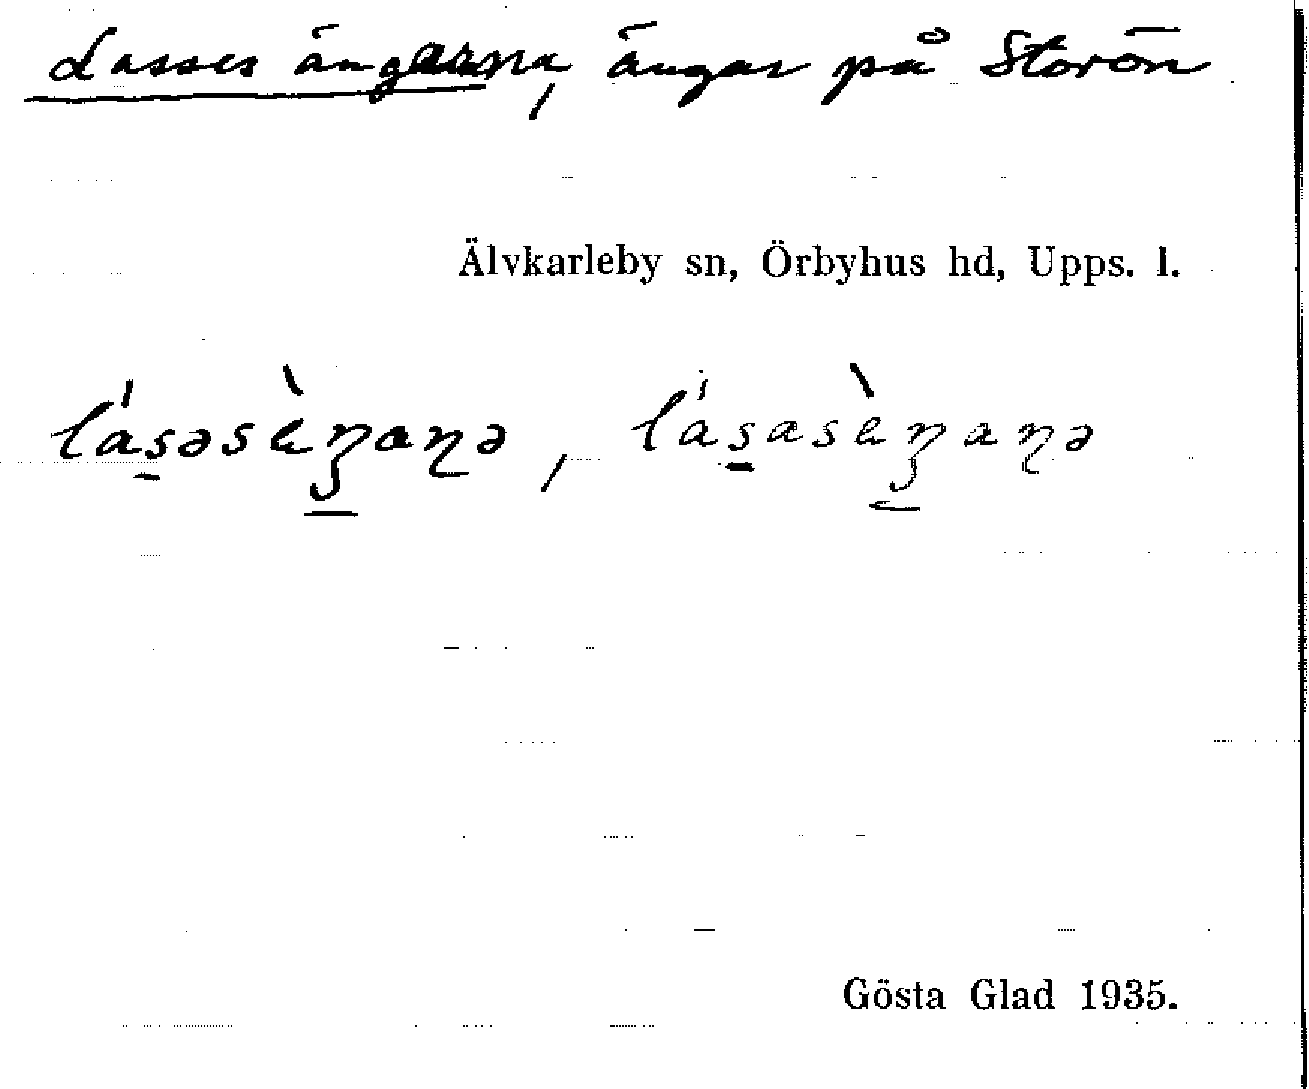 Lasses ängarna, ängar på Storön
Älvkarleby sn, Örbyhus hd, Upps. l.
lás̱əsèŋ̱aɳə, lás̱asèŋ̱aɳə
Gösta Glad 1935.